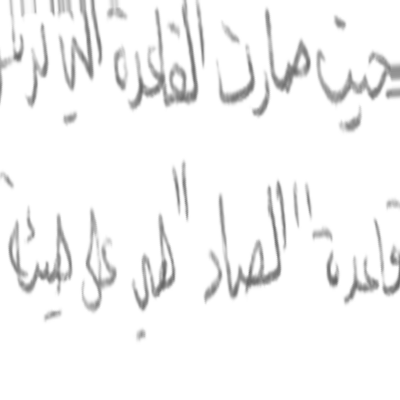 بحيث صارت القاعدة التي تربط
قاعدة "الصاد" هي على هيئة